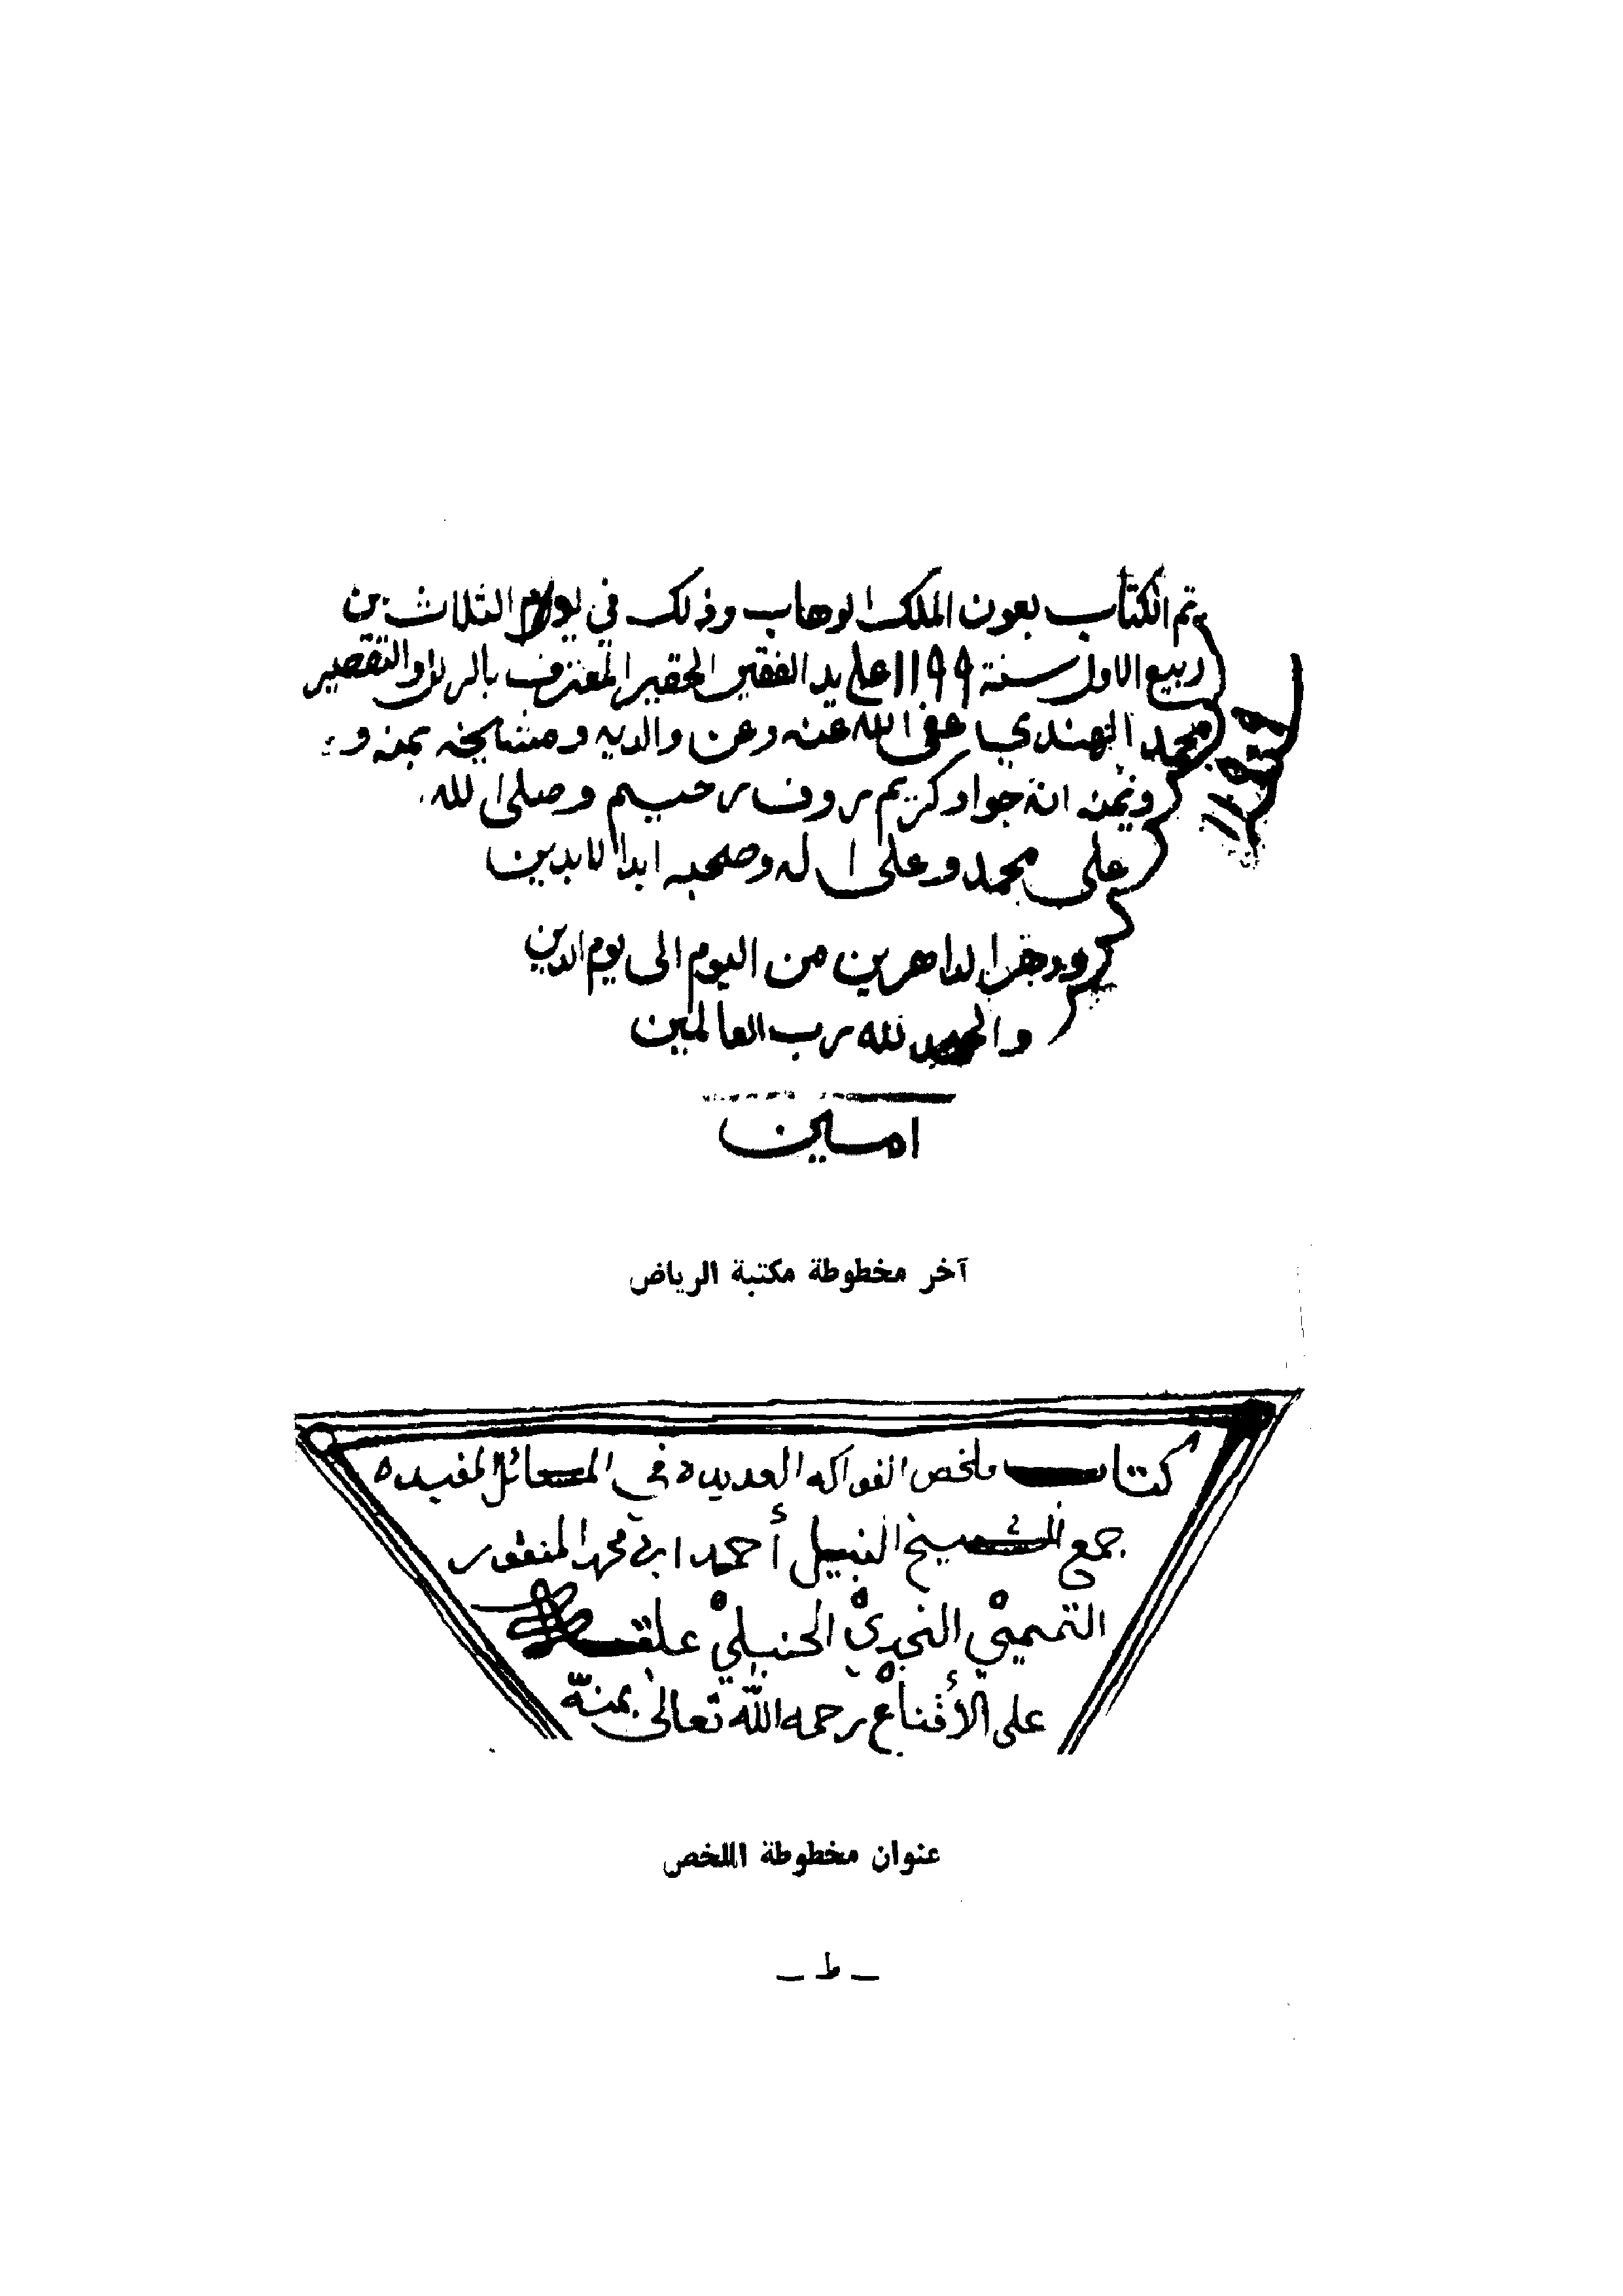 تم الكتاب بعون الملك الوهاب وذلك في يوم الثلاث من
ربيع الاول سنة ١١٩٩ على يد الفقير الحقير المعترف بالزلل والتقصير
محمد الهندي عفى الله عنه وعن والديه ومشايخه بمنه و
ويمنه انه جواد كريم روف رحيم وصلى الله
على محمد وعلى اله وصحبه ابد الابدين
ودهر الداهرين من اليوم الى يوم الدين
والحمد لله رب العالمين
امين
آخر مخطوطة مكتبة الرياض
كتاب ملخص الفواكه العديده في المسائل المفيده
جمع الشيخ النبيل أحمد ابن محمد المنقور
التميمي النجدي الحنبلي علقه
على الأقناع رحمه الله تعالى بمنه
عنوان مخطوطة الملخص
ـ ط ـ